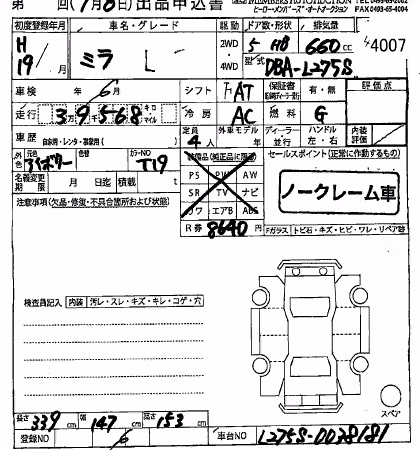 第 回(7月8日)出品申込書
初度登録年月 車名・グレード 駆動 ドア数・形状 排気量
H19/ ミラ L 2WD 4WD 5 HB 660cc 4007
型式 DBA-L275S
車検 年 6月 シフト FAT 保証書 有・無 評価点
走行 3万9千568 キロ マイル 冷房 AC 燃料 G
車歴 自家用・レンタ・事業用( ) 定員 4人 外車モデル 年 ディーラー 並行 ハンドル 左・右 内装評価
外色 元色 色替 カラーNO T19 装備品(純正品に限る) セールスポイント(正常に作動するもの)
名義変更期限 月 日迄 積載 t PS PW AW
SR TV ナビ
カワ エアB ABS
ノークレーム車
注意事項(欠品・修復・不具合箇所および状態)
R券 8640円 Fガラス トビ石・キズ・ヒビ・ワレ・リペア跡
検査員記入 内装 汚レ・スレ・キズ・キレ・コゲ・穴
スペア
長さ 339cm 幅 147cm 高さ 153cm
登録NO 車台NO L275S-0038181